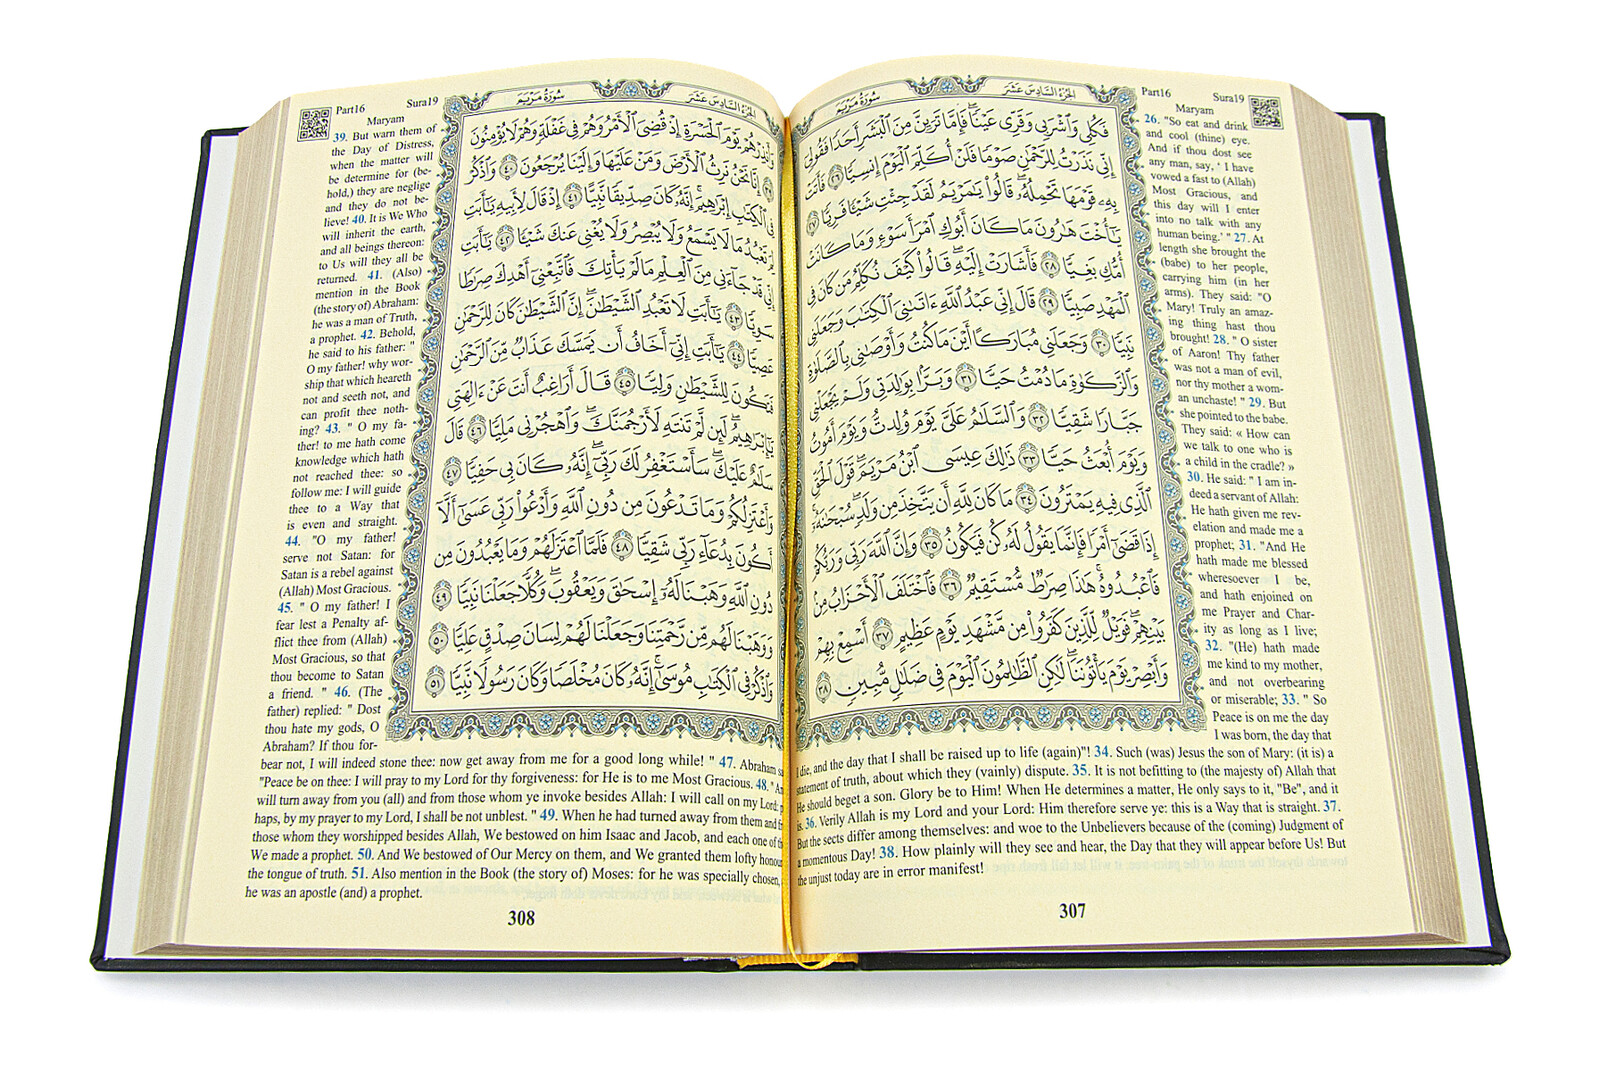 الجزء السادس عشر سورة مريم
فَكُلِي وَٱشْرَبِي وَقَرِّي عَيْنٗاۖ فَإِمَّا تَرَيِنَّ مِنَ ٱلۡبَشَرِ أَحَدٗا فَقُولِيٓ
إِنِّي نَذَرۡتُ لِلرَّحۡمَٰنِ صَوۡمٗا فَلَنۡ أُكَلِّمَ ٱلۡيَوۡمَ إِنسِيّٗا ٢٦ فَأَتَتۡ
بِهِۦ قَوۡمَهَا تَحۡمِلُهُۥۖ قَالُواْ يَٰمَرۡيَمُ لَقَدۡ جِئۡتِ شَيۡـٔٗا فَرِيّٗا ٢٧
يَٰٓأُخۡتَ هَٰرُونَ مَا كَانَ أَبُوكِ ٱمۡرَأَ سَوۡءٖ وَمَا كَانَتۡ
أُمُّكِ بَغِيّٗا ٢٨ فَأَشَارَتۡ إِلَيۡهِۖ قَالُواْ كَيۡفَ نُكَلِّمُ مَن كَانَ فِي
ٱلۡمَهۡدِ صَبِيّٗا ٢٩ قَالَ إِنِّي عَبۡدُ ٱللَّهِ ءَاتَىٰنِيَ ٱلۡكِتَٰبَ وَجَعَلَنِي
نَبِيّٗا ٣٠ وَجَعَلَنِي مُبَارَكًا أَيۡنَ مَا كُنتُ وَأَوۡصَٰنِي بِٱلصَّلَوٰةِ
وَٱلزَّكَوٰةِ مَا دُمۡتُ حَيّٗا ٣١ وَبَرَّۢا بِوَٰلِدَتِي وَلَمۡ يَجۡعَلۡنِي
جَبَّارٗا شَقِيّٗا ٣٢ وَٱلسَّلَٰمُ عَلَيَّ يَوۡمَ وُلِدتُّ وَيَوۡمَ أَمُوتُ
وَيَوۡمَ أُبۡعَثُ حَيّٗا ٣٣ ذَٰلِكَ عِيسَى ٱبۡنُ مَرۡيَمَۖ قَوۡلَ ٱلۡحَقِّ
ٱلَّذِي فِيهِ يَمۡتَرُونَ ٣٤ مَا كَانَ لِلَّهِ أَن يَتَّخِذَ مِن وَلَدٖۖ سُبۡحَٰنَهُۥٓۚ
إِذَا قَضَىٰٓ أَمۡرٗا فَإِنَّمَا يَقُولُ لَهُۥ كُن فَيَكُونُ ٣٥ وَإِنَّ ٱللَّهَ رَبِّي وَرَبُّكُمۡ
فَٱعۡبُدُوهُۚ هَٰذَا صِرَٰطٞ مُّسۡتَقِيمٞ ٣٦ فَٱخۡتَلَفَ ٱلۡأَحۡزَابُ مِنۢ
بَيۡنِهِمۡۖ فَوَيۡلٞ لِّلَّذِينَ كَفَرُواْ مِن مَّشۡهَدِ يَوۡمٍ عَظِيمٍ ٣٧ أَسۡمِعۡ بِهِمۡ
وَأَبۡصِرۡ يَوۡمَ يَأۡتُونَنَا لَٰكِنِ ٱلظَّٰلِمُونَ ٱلۡيَوۡمَ فِي ضَلَٰلٖ مُّبِينٖ ٣٨
Part16 Sura19
Maryam
26. "So eat and drink
and cool (thine) eye.
And if thou dost see
any man, say, ' I have
vowed a fast to (Allah)
Most Gracious, and
this day will I enter
into no talk with any
human being.' " 27. At
length she brought the
(babe) to her people,
carrying him (in her
arms). They said: "O
Mary! Truly an amaz-
ing thing hast thou
brought! 28. " O sister
of Aaron! Thy father
was not a man of evil,
nor thy mother a wom-
an unchaste! " 29. But
she pointed to the babe.
They said: « How can
we talk to one who is
a child in the cradle? »
30. He said: " I am in-
deed a servant of Allah:
He hath given me rev-
elation and made me a
prophet; 31. "And He
hath made me blessed
wheresoever I be,
and hath enjoined on
me Prayer and Char-
ity as long as I live;
32. "(He) hath made
me kind to my mother,
and not overbearing
or miserable; 33. " So
Peace is on me the day
I was born, the day that
I die, and the day that I shall be raised up to life (again)"! 34. Such (was) Jesus the son of Mary: (it is) a
statement of truth, about which they (vainly) dispute. 35. It is not befitting to (the majesty of) Allah that
He should beget a son. Glory be to Him! When He determines a matter, He only says to it, "Be", and it
is. 36. Verily Allah is my Lord and your Lord: Him therefore serve ye: this is a Way that is straight. 37.
But the sects differ among themselves: and woe to the Unbelievers because of the (coming) Judgment of
a momentous Day! 38. How plainly will they see and hear, the Day that they will appear before Us! But
the unjust today are in error manifest!
307
الجزء السادس عشر سورة مريم
وَأَنذِرۡهُمۡ يَوۡمَ ٱلۡحَسۡرَةِ إِذۡ قُضِيَ ٱلۡأَمۡرُ وَهُمۡ فِي غَفۡلَةٖ وَهُمۡ لَا يُؤۡمِنُونَ
٣٩ إِنَّا نَحۡنُ نَرِثُ ٱلۡأَرۡضَ وَمَنۡ عَلَيۡهَا وَإِلَيۡنَا يُرۡجَعُونَ ٤٠ وَٱذۡكُرۡ
فِي ٱلۡكِتَٰبِ إِبۡرَٰهِيمَۚ إِنَّهُۥ كَانَ صِدِّيقٗا نَّبِيًّا ٤١ إِذۡ قَالَ لِأَبِيهِ يَٰٓأَبَتِ
تَعۡبُدُ مَا لَا يَسۡمَعُ وَلَا يُبۡصِرُ وَلَا يُغۡنِي عَنكَ شَيۡـٔٗا ٤٢ يَٰٓأَبَتِ
إِنِّي قَدۡ جَآءَنِي مِنَ ٱلۡعِلۡمِ مَا لَمۡ يَأۡتِكَ فَٱتَّبِعۡنِيٓ أَهۡدِكَ صِرَٰطٗا
سَوِيّٗا ٤٣ يَٰٓأَبَتِ لَا تَعۡبُدِ ٱلشَّيۡطَٰنَۖ إِنَّ ٱلشَّيۡطَٰنَ كَانَ لِلرَّحۡمَٰنِ
عَصِيّٗا ٤٤ يَٰٓأَبَتِ إِنِّيٓ أَخَافُ أَن يَمَسَّكَ عَذَابٞ مِّنَ ٱلرَّحۡمَٰنِ
فَتَكُونَ لِلشَّيۡطَٰنِ وَلِيّٗا ٤٥ قَالَ أَرَاغِبٌ أَنتَ عَنۡ ءَالِهَتِي
يَٰٓإِبۡرَٰهِيمُۖ لَئِن لَّمۡ تَنتَهِ لَأَرۡجُمَنَّكَۖ وَٱهۡجُرۡنِي مَلِيّٗا ٤٦ قَالَ
سَلَٰمٌ عَلَيۡكَۖ سَأَسۡتَغۡفِرُ لَكَ رَبِّيٓۖ إِنَّهُۥ كَانَ بِي حَفِيّٗا ٤٧
وَأَعۡتَزِلُكُمۡ وَمَا تَدۡعُونَ مِن دُونِ ٱللَّهِ وَأَدۡعُواْ رَبِّي عَسَىٰٓ أَلَّآ
أَكُونَ بِدُعَآءِ رَبِّي شَقِيّٗا ٤٨ فَلَمَّا ٱعۡتَزَلَهُمۡ وَمَا يَعۡبُدُونَ مِن
دُونِ ٱللَّهِ وَهَبۡنَا لَهُۥٓ إِسۡحَٰقَ وَيَعۡقُوبَۖ وَكُلّٗا جَعَلۡنَا نَبِيّٗا ٤٩
وَوَهَبۡنَا لَهُم مِّن رَّحۡمَتِنَا وَجَعَلۡنَا لَهُمۡ لِسَانَ صِدۡقٍ عَلِيّٗا ٥٠
وَٱذۡكُرۡ فِي ٱلۡكِتَٰبِ مُوسَىٰٓۚ إِنَّهُۥ كَانَ مُخۡلَصٗا وَكَانَ رَسُولٗا نَّبِيّٗا ٥١
Part16 Sura19
Maryam
39. But warn them of
the Day of Distress,
when the matter will
be determine for (be-
hold,) they are neglige
and they do not be-
lieve! 40. It is We Who
will inherit the earth,
and all beings thereon:
to Us will they all be
returned. 41. (Also)
mention in the Book
(the story of) Abraham:
he was a man of Truth,
a prophet. 42. Behold,
he said to his father: "
O my father! why wor-
ship that which heareth
not and seeth not, and
can profit thee noth-
ing? 43. " O my fa-
ther! to me hath come
knowledge which hath
not reached thee: so
follow me: I will guide
thee to a Way that
is even and straight.
44. "O my father!
serve not Satan: for
Satan is a rebel against
(Allah) Most Gracious.
45. " O my father! I
fear lest a Penalty af-
flict thee from (Allah)
Most Gracious, so that
thou become to Satan
a friend. " 46. (The
father) replied: " Dost
thou hate my gods, O
Abraham? If thou for-
bear not, I will indeed stone thee: now get away from me for a good long while! " 47. Abraham
"Peace be on thee: I will pray to my Lord for thy forgiveness: for He is to me Most Gracious. 48. "
will turn away from you (all) and from those whom ye invoke besides Allah: I will call on my Lord:
haps, by my prayer to my Lord, I shall be not unblest. " 49. When he had turned away from them and
those whom they worshipped besides Allah, We bestowed on him Isaac and Jacob, and each one of
We made a prophet. 50. And We bestowed of Our Mercy on them, and We granted them lofty
the tongue of truth. 51. Also mention in the Book (the story of) Moses: for he was specially chosen,
he was an apostle (and) a prophet.
308